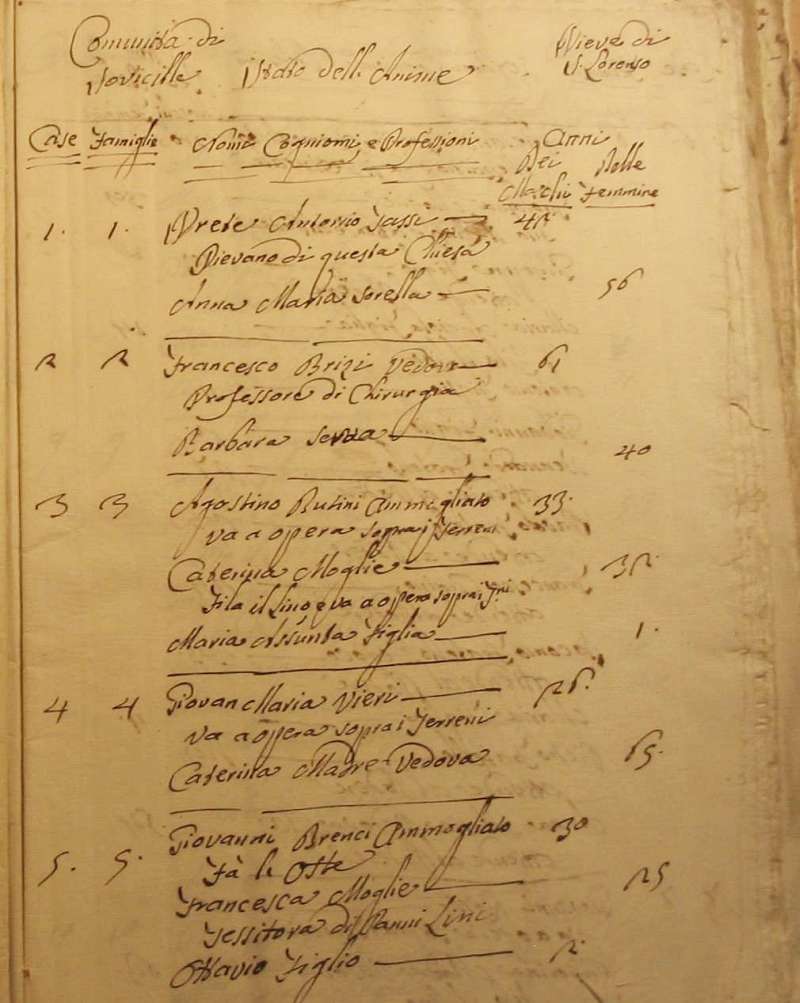 Comunità di
Sovicille Stato dell. Anime Pieve di
S. Lorenso
Case Famiglie Nomi Cogniomi, e Professioni Anni
Dei Delle
Maschi Femmine
1. 1. Prete Antonio Tassi 42
Pievano di questa Chiesa
Anna Maria Sorella 56
2 2 Francesco Brizi Vedovo 61
Professore di Chirurgia
Barbara Serva 40
3 3 Agostino Butini Ammogliato 33.
va a opera sopra i Terreni
Caterina Moglie 32.
Fila il Lino e va a opera sopra i Tni
Maria Assunta Figlia 1.
4 4 Giovan Maria Vieri 26.
va a opera sopra i Terreni
Caterina Madre Vedova 65.
Giovanni Brenci Ammogliato 30
5. 5. Fà l. Oste
Francesca Moglie 25
Tessitora di Panni Lini
Ottavio Figlio 2.